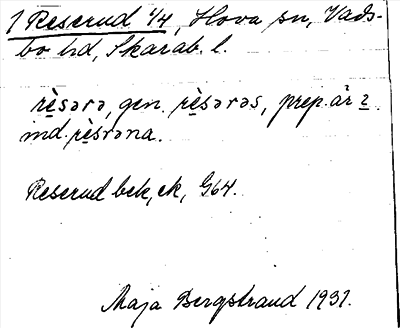 1 Reserud 1/4, Hova sn, Vads-
bo hd, Skarab. l.
rè̱sərə, gen. rè̱sərəs, prep. är 2
ind. rè̱srəna.
Reserud bek, ek, G64.
Maja Bergstrand 1931.